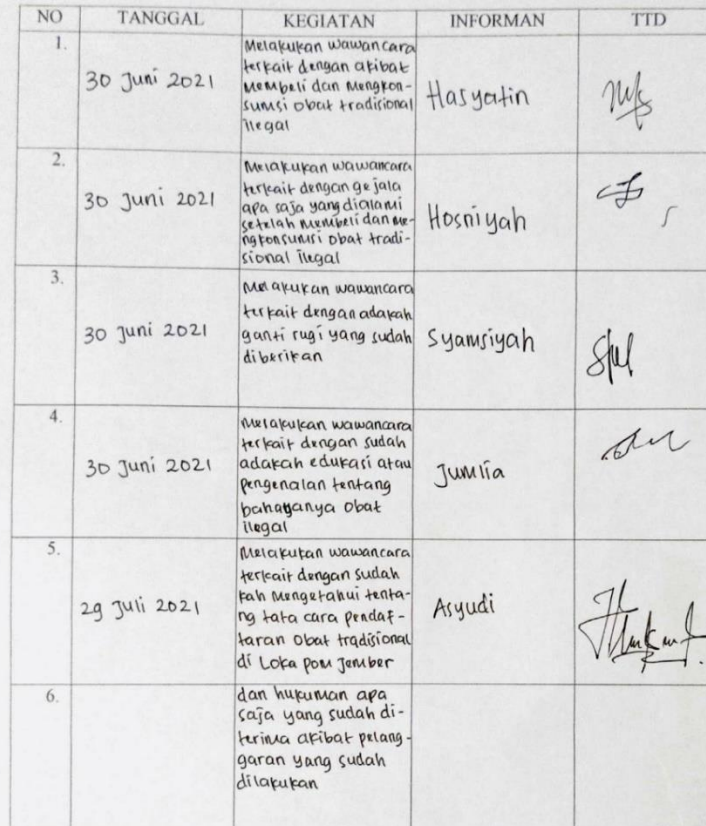 NO TANGGAL KEGIATAN INFORMAN TTD
1.
30 Juni 2021
Melakukan wawancara
terkait dengan akibat
membeli dan mengkon-
sumsi obat tradisional
ilegal
Hasyatin
2.
30 Juni 2021
Melakukan wawancara
terkait dengan gejala
apa saja yang dialami
setelah membeli dan me-
ngkonsumsi obat tradi-
sional ilegal
Hosniyah
3.
30 Juni 2021
Melakukan wawancara
terkait dengan adakah
ganti rugi yang sudah
diberikan
Syamsiyah
4.
30 Juni 2021
Melakukan wawancara
terkait dengan sudah
adakah edukasi atau
pengenalan tentang
bahayanya obat
ilegal
Jumlia
5.
29 Juli 2021
Melakukan wawancara
terkait dengan sudah
kah mengetahui tenta-
ng tata cara pendaf-
taran obat tradisional
di Loka pom Jember
Asyudi
6.
dan hukuman apa
saja yang sudah di-
terima akibat pelang-
garan yang sudah
dilakukan